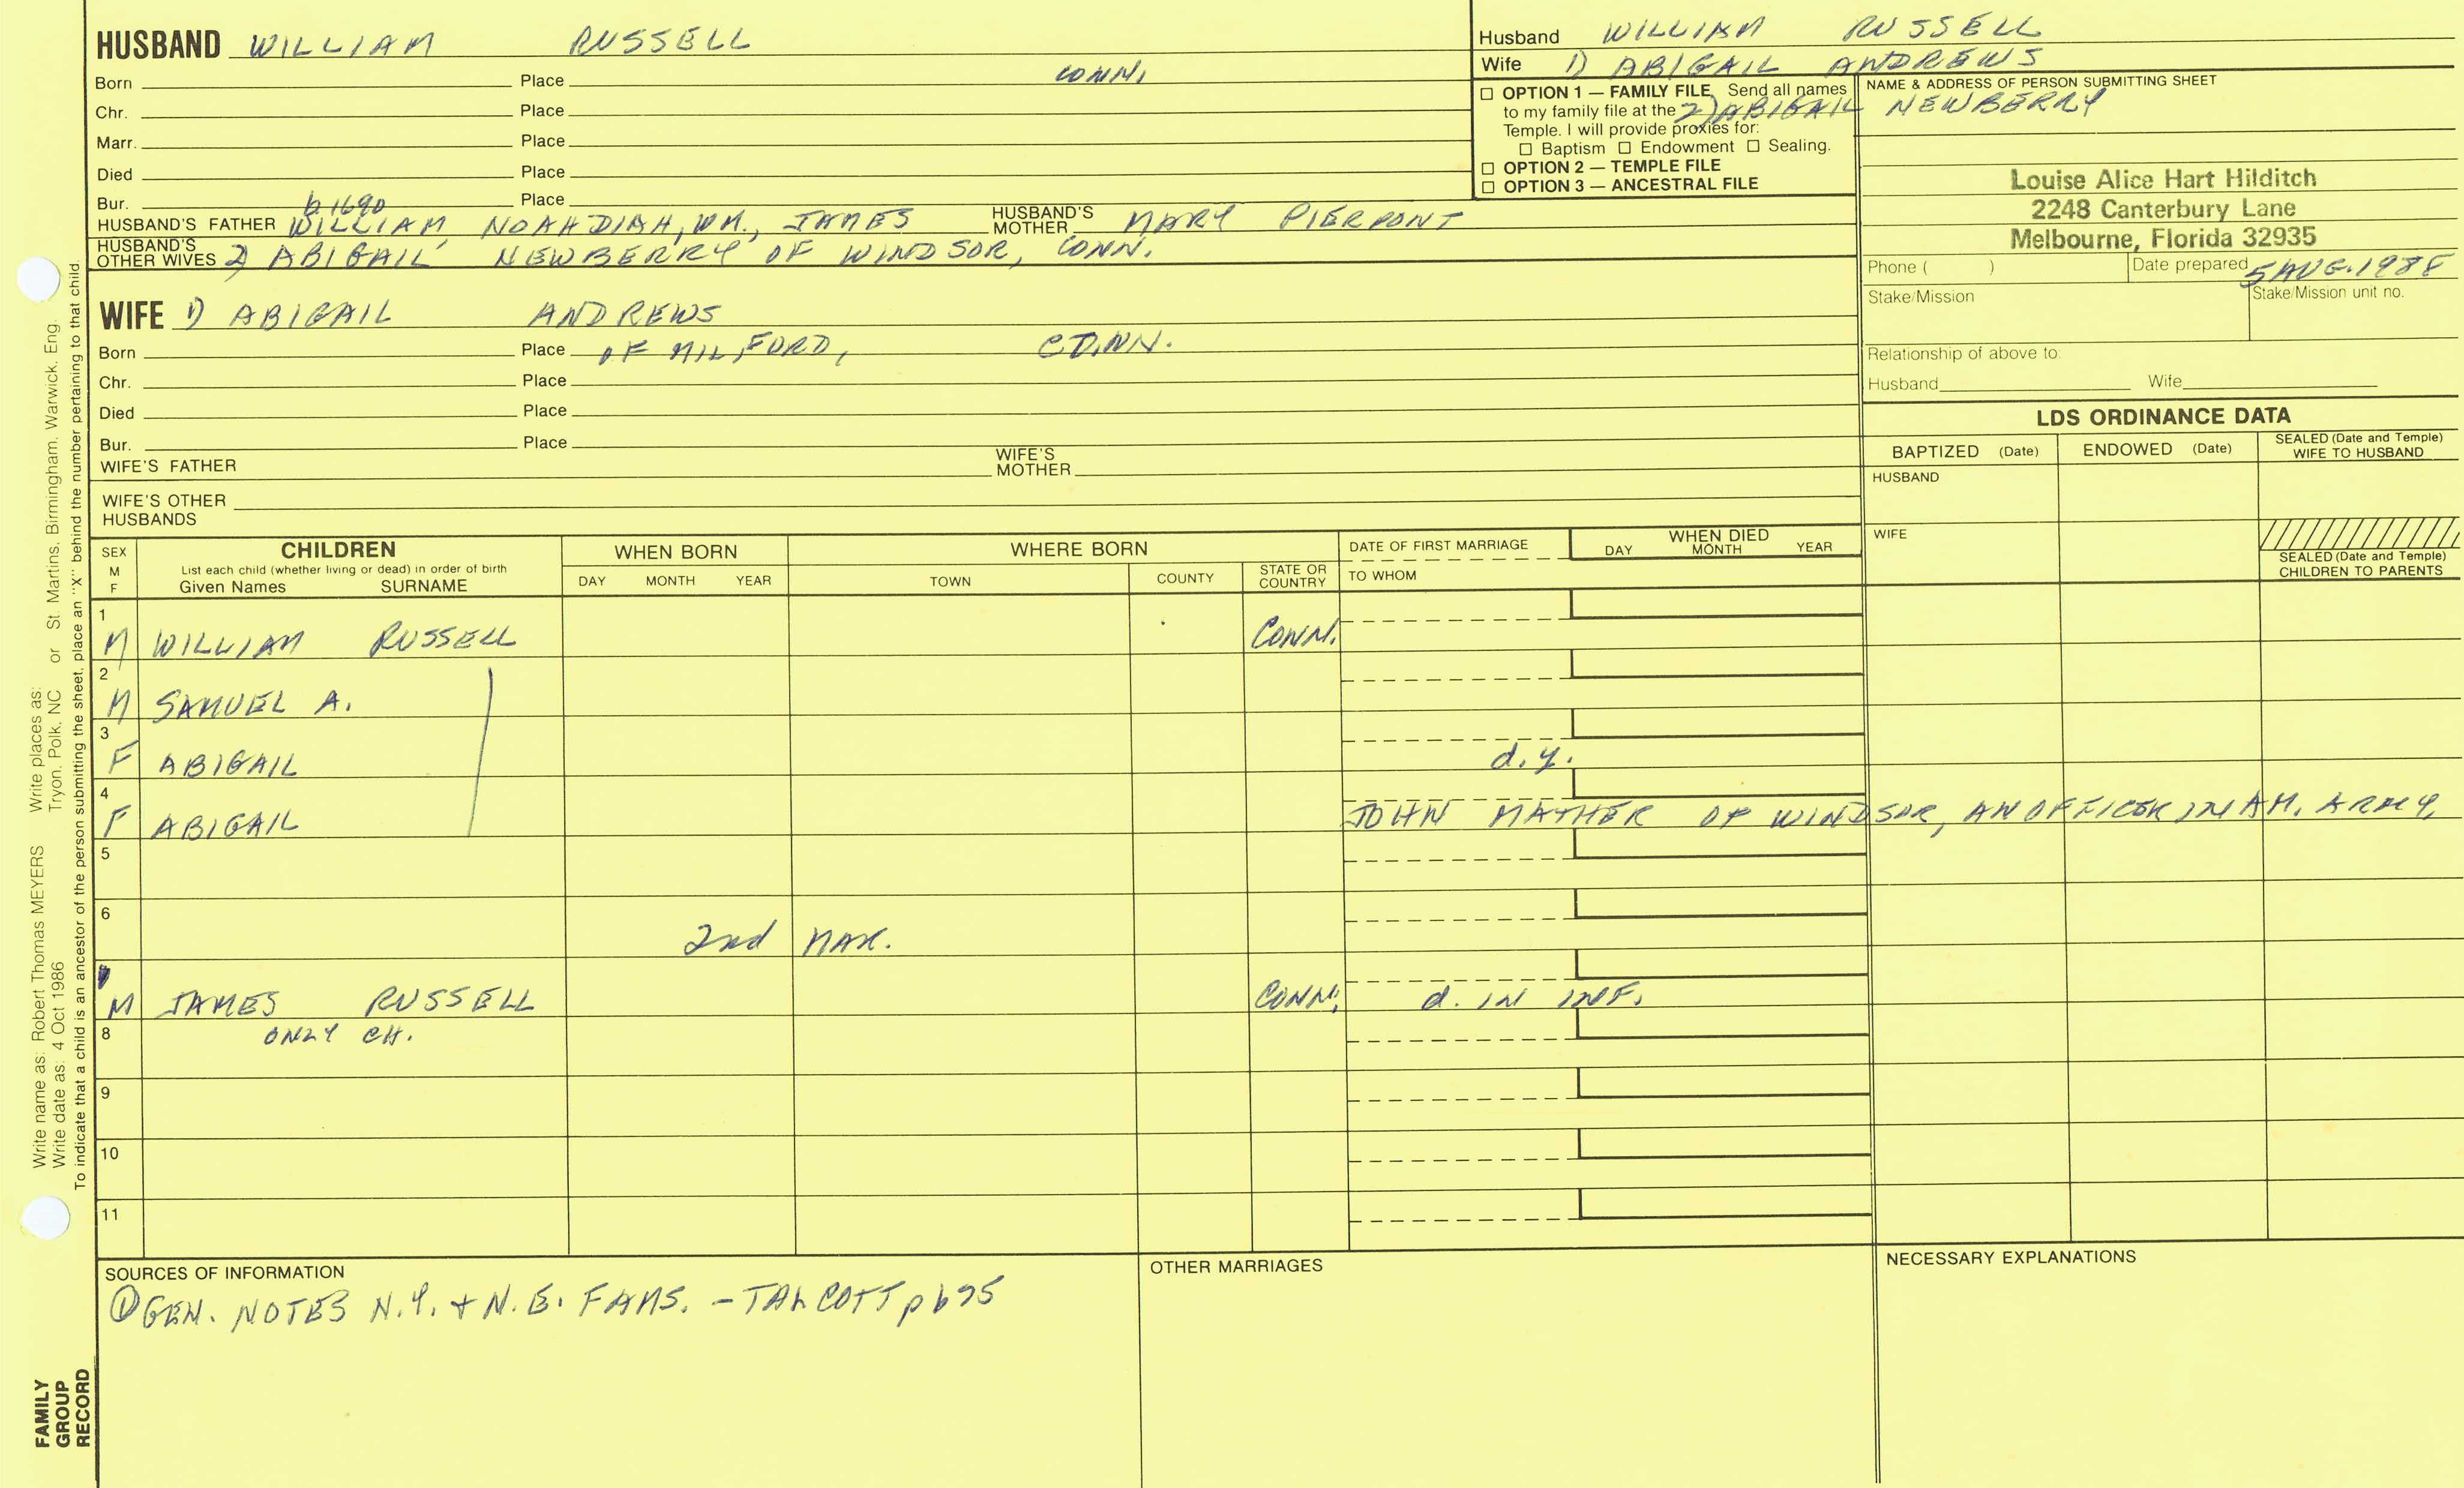 HUSBAND WILLIAM RUSSELL
Born Place CONN.
Chr. Place
Marr. Place
Died Place
Bur. Place
b 1690
HUSBAND'S FATHER WILLIAM, NOAHDIAH, WM., JAMES HUSBAND'S MOTHER MARY PIERPONT
HUSBAND'S OTHER WIVES 2) ABIGAIL NEWBERRY OF WINDSOR, CONN.
WIFE 1) ABIGAIL ANDREWS
Born Place OF MILFORD, CONN.
Chr. Place
Died Place
Bur. Place
WIFE'S FATHER WIFE'S MOTHER
WIFE'S OTHER HUSBANDS
Husband WILLIAM RUSSELL
Wife 1) ABIGAIL ANDREWS
2) ABIGAIL NEWBERRY
☐ OPTION 1 — FAMILY FILE Send all names
to my family file at the
Temple. I will provide proxies for:
☐ Baptism ☐ Endowment ☐ Sealing.
☐ OPTION 2 — TEMPLE FILE
☐ OPTION 3 — ANCESTRAL FILE
NAME & ADDRESS OF PERSON SUBMITTING SHEET
Louise Alice Hart Hilditch
2248 Canterbury Lane
Melbourne, Florida 32935
Phone ( ) Date prepared 5 AUG. 1988
Stake/Mission Stake/Mission unit no.
Relationship of above to:
Husband Wife
LDS ORDINANCE DATA
BAPTIZED (Date) ENDOWED (Date) SEALED (Date and Temple) WIFE TO HUSBAND
HUSBAND
WIFE
SEALED (Date and Temple) CHILDREN TO PARENTS
SEX M F CHILDREN
List each child (whether living or dead) in order of birth
Given Names SURNAME
WHEN BORN
DAY MONTH YEAR
WHERE BORN
TOWN COUNTY STATE OR COUNTRY
DATE OF FIRST MARRIAGE
TO WHOM
WHEN DIED
DAY MONTH YEAR
1
M WILLIAM RUSSELL CONN.
2
M SAMUEL A.
3
F ABIGAIL d.y.
4
F ABIGAIL JOHN MATHER OF WINDSOR, AN OFFICER IN AM. ARMY.
5
6
2nd MAR.
M JAMES RUSSELL CONN. d. IN INF.
8 ONLY CH.
9
10
11
SOURCES OF INFORMATION
① GEN. NOTES N.Y. + N.E. FAMS. - TALCOTT p 675
OTHER MARRIAGES
NECESSARY EXPLANATIONS
Write name as: Robert Thomas MEYERS Write places as: St. Martins, Birmingham, Warwick, Eng.
Write date as: 4 Oct 1986 Tryon, Polk, NC or
To indicate that a child is an ancestor of the person submitting the sheet, place an "X" behind the number pertaining to that child.
FAMILY
GROUP
RECORD